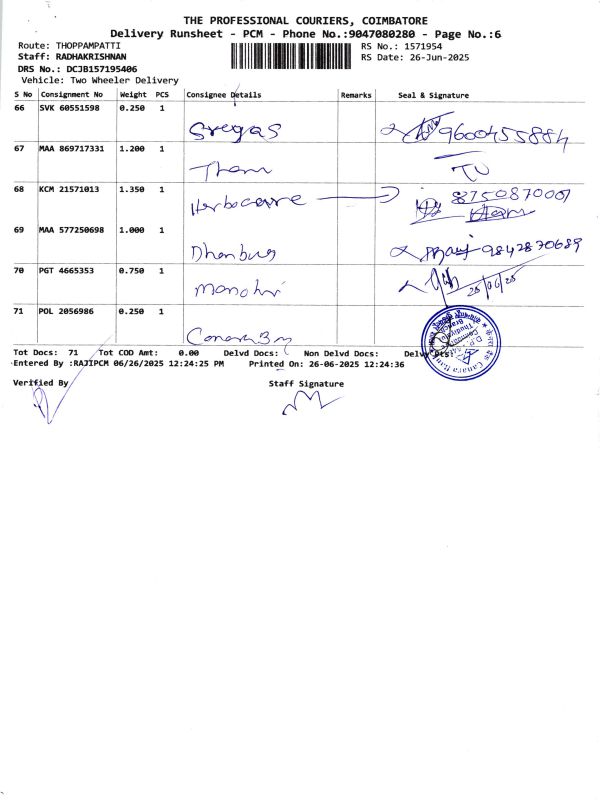 THE PROFESSIONAL COURIERS, COIMBATORE
Delivery Runsheet - PCM - Phone No.:9047080280 - Page No.:6
Route: THOPPAMPATTI RS No.: 1571954
Staff: RADHAKRISHNAN RS Date: 26-Jun-2025
DRS No.: DCJB157195406
Vehicle: Two Wheeler Delivery
S No Consignment No Weight PCS Consignee Details Remarks Seal & Signature
66 SVK 60551598 0.250 1
Sregas 9600455884
67 MAA 869717331 1.200 1
68 KCM 21571013 1.350 1
Herbocare 8750870007
69 MAA 577250698 1.000 1
9842870689
70 PGT 4665353 0.750 1
25/06/25
71 POL 2056986 0.250 1
Tot Docs: 71 Tot COD Amt: 0.00 Delvd Docs: Non Delvd Docs:
Entered By :RAJIPCM 06/26/2025 12:24:25 PM Printed On: 26-06-2025 12:24:36
Verified By Staff Signature